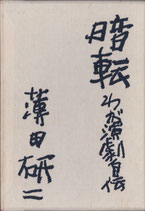 暗転
わが演劇自伝
薄田研二